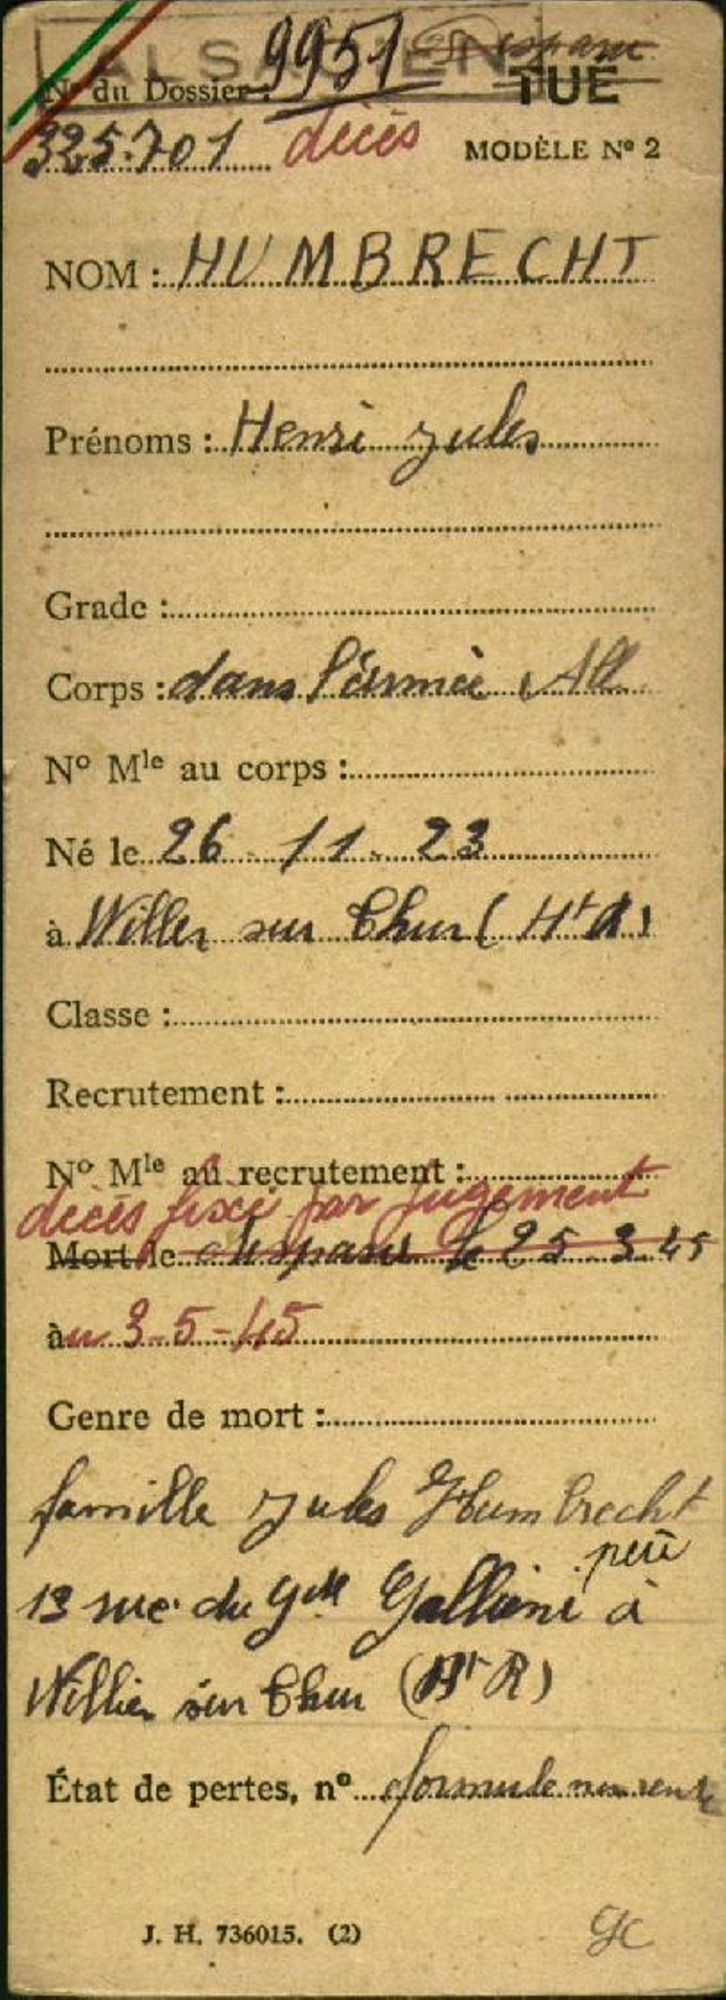 ALSACIEN
9951 disparu
N° du Dossier : TUÉ
325.701 décès MODÈLE N° 2
NOM : HUMBRECHT
Prénoms : Henri Jules
Grade :
Corps : dans l'armée All
N° Mle au corps :
Né le 26 - 11 - 23
à Willer sur Thur (Ht R)
Classe :
Recrutement :
N° Mle au recrutement :
décès fixé par jugement
Mort le disparu le 25 3 45
au 3-5-45
Genre de mort :
famille Jules Humbrecht
père
13 rue du Gal Galliéni à
Willer sur Thur (Ht R)
État de pertes, n° formule
J. H. 736015. (2)
GC